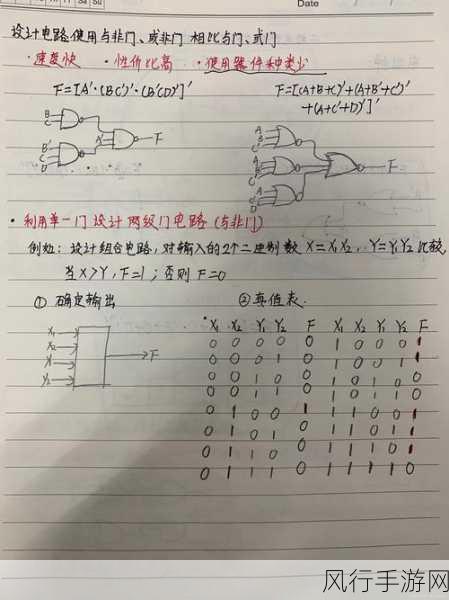 Date
设计电路使用与非门、或非门 相比与门、或门
· 速度快 · 性价比高 · 使用器件种类少
F=[A'·(BC)'·(B'CD)']'
F=[(A+B+C)'+(A+B'+C')'
+(A+C'+D)']'
B
C
A'
B'
C
D
F
A
B
C
A
B'
C'
A
C'
D
F
· 利用单一门设计两级门电路(与非门)
例如: 设计组合电路, 对输入的2个二进制数 X=X₁X₂, Y=Y₁Y₂ 比较,
当 X>Y, F=1; 否则 F=0
① 确定输出
② 真值表.
X₁
X₂
Y₁
Y₂
F
X₁ X₂ Y₁ Y₂ F X₁ X₂ Y₁ Y₂ F
0 0 0 0 0 1 0 0 0 1
0 0 0 1 0 1 0 0 1 1
0 0 1 0 0 1 0 1 0 0
0 0 1 1 0 1 0 1 1 0
0 1 0 0 1 1 1 0 0 1
0 1 0 1 0 1 1 0 1 1
0 1 1 0 0 1 1 1 0 1
0 1 1 1 0 1 1 1 1 0
风行手游网